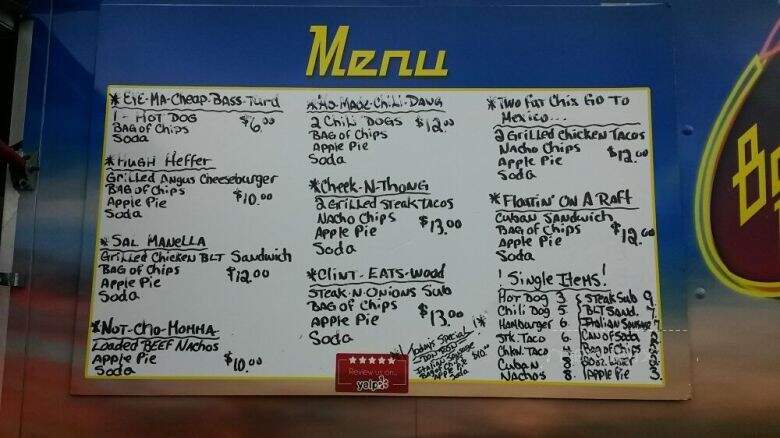 Menu
* EYE-MA-Cheap-BASS-Turd
1 - HOT DOG
BAG of Chips $6.00
Soda
* HUGH HEFFER
GriLLed Angus Cheeseburger
BAG of Chips $10.00
Apple Pie
Soda
* SAL MANELLA
GriLLed Chicken BLT Sandwich
BAG of Chips $12.00
Apple Pie
Soda
* NOT-Cho-MOMMA
Loaded BEEF NAchos
Apple Pie
Soda $10.00
2 Chili DOGS $12.00
BAG of Chips
Apple Pie
Soda
* Cheek-N-Thong
2 GriLLed STeakTacos
NAcho Chips $13.00
Apple Pie
Soda
* CLiNT-EATS-Wood
STEAK-N-Onions Sub
BAG of Chips
Apple Pie $13.00
Soda
Todays Special
$10.00
Soda
Review us on...
yelp
* TWO FAT Chix GO TO
Mexico...
2 GriLLed Chicken Tacos
NAcho Chips
Apple Pie $12.00
Soda
* FLOATIN' ON A RAFT
CUBAN Sandwich
BAG of Chips
Apple Pie $12.00
Soda
! Single ITEMS!
HOT Dog 3 STEAK Sub 9
Chili Dog 5 BLT SAND. 7
Hamburger 6 ITalian SAUSAge 7
STK. TACO 6 CAN of Soda
ChkN. TACO Bag of Chips
CUBAN 8
NAchos 8. Apple Pie